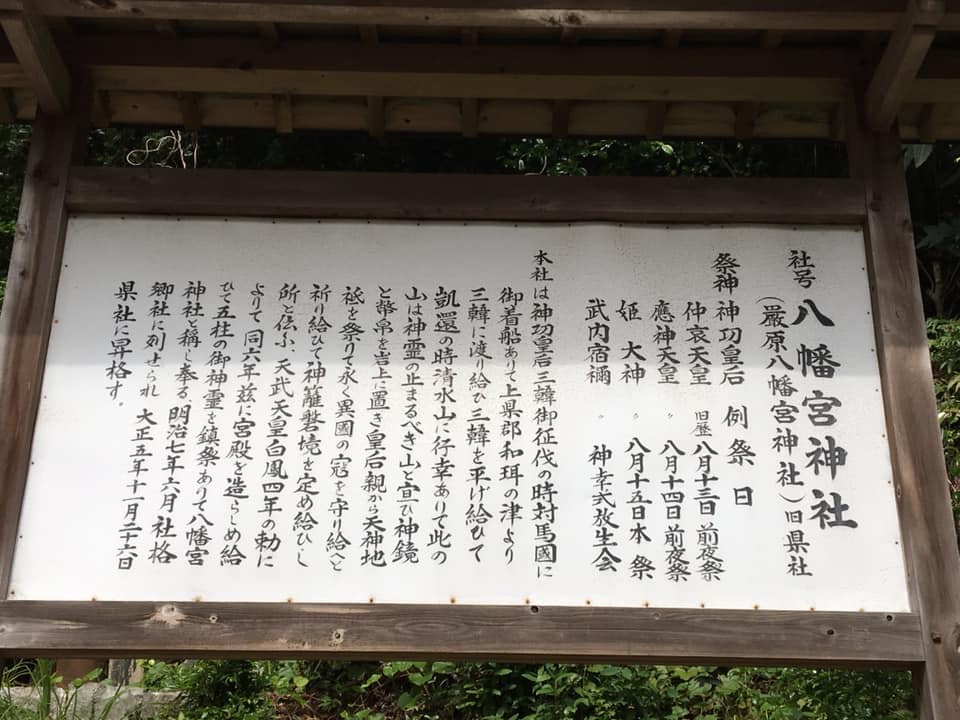 社号 八幡宮神社
（厳原八幡宮神社）旧県社
祭神 神功皇后 例祭日
仲哀天皇 旧歴 八月十三日 前夜祭
應神天皇 〃 八月十四日 前夜祭
姫大神 〃 八月十五日 本祭
武内宿禰 〃 神幸式放生会
本社は神功皇后三韓御征伐の時対馬國に
御着船ありて上県郡和珥の津より
三韓に渡り給ひ三韓を平げ給ひて
凱還の時清水山に行幸ありて此の
山は神霊の止まるべき山と宣ひ神鏡
と幣帛を岩上に置き皇后親から天神地
祇を祭りて永く異國の寇を守り給へと
祈り給ひて神籬磐境を定め給ひし
所と伝ふ、天武天皇白鳳四年の勅に
よりて同六年茲に宮殿を造らしめ給
ひて五柱の御神霊を鎮祭ありて八幡宮
神社と稱し奉る。明治七年六月社格
郷社に列せられ 大正五年十一月二十六日
県社に昇格す。